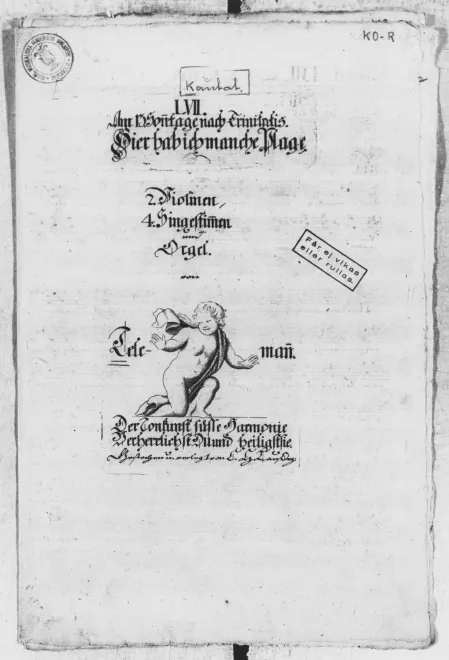 KO-R
Kantat.
LVII
Am 13 Sontage nach Trinitatis.
Hier hab ich manche Plage
2. Violinen,
4. Singestimmen
und
Orgel.
von
Får ej vikas
eller rullas.
Tele- mañ.
Der Tonkunst süsse Harmonie
Verherrlichst Du und heiligst sie.
Gestochen u. verlegt von